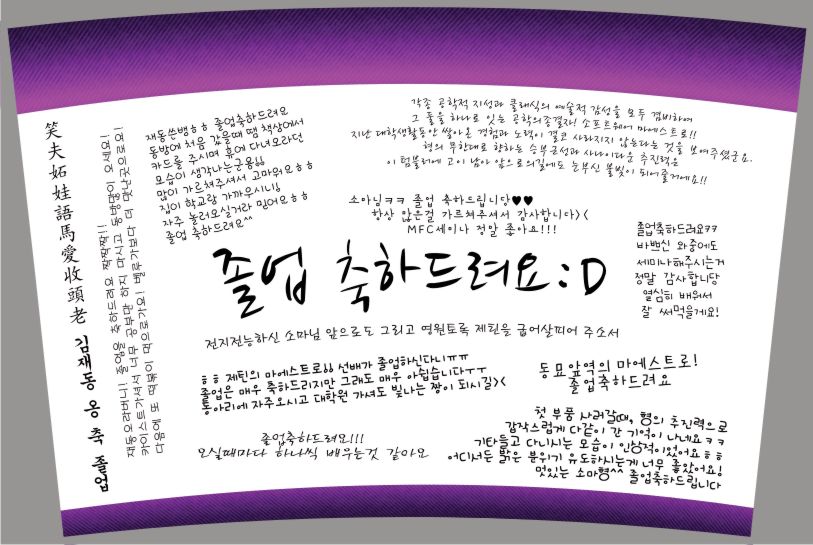 笑夫妬娃語馬愛收頭老 김재동 옹 축 졸업
재동오라버니! 졸업을 축하드려요 짝짝짝!!
카이스트가셔서 너무 공부만 하지 마시고 동방많이 오세요!
다음에 또 떡볶이 먹으로가요! 벨루가보다 더 맛난곳으로요!
재동쓴뱅ㅎㅎ 졸업축하드려요
동방에 처음 갔을때 땜 책상에서
카드를 주시며 휴에 다녀오라던
모습이 생각나는구용ㅎㅎ
많이 가르쳐주셔서 고마워요ㅎㅎ
집이 학교랑 가까우시니
자주 놀러오실거라 믿어요ㅎㅎ
졸업 축하드려요^^
각종 공학적 지성과 클래식의 예술적 감성을 모두 겸비하여
그 둘을 하나로 잇는 공학의종결자! 소프트웨어 마에스트로!!
지난 대학생활동안 쌓아온 경험과 노력이 결코 사라지지 않는다는 것을 보여주셨군요.
형의 무한대로 향하는 승부근성과 사나이다운 추진력은
이 텀블러에 고이 남아 앞으로의길에도 눈부신 불빛이 되어줄거에요!!
소아님ㅋㅋ 졸업 축하드립니당♥♥
항상 많은걸 가르쳐주셔서 감사합니다><
MFC세미나 정말 좋아요!!!
졸업축하드려요ㅋㅋ
바쁘신 와중에도
세미나해주시는거
정말 감사합니당
열심히 배워서
잘 써먹을게요!
졸업 축하드려요:D
전지전능하신 소마님 앞으로도 그리고 영원토록 제틴을 굽어살피어 주소서
ㅎㅎ 제틴의 마에스트로!! 선배가 졸업하신다니ㅠㅠ
졸업은 매우 축하드리지만 그래도 매우 아쉽습니다ㅜㅜ
동아리에 자주오시고 대학원 가셔도 빛나는 짱이 되시길><
동묘앞역의 마에스트로!
졸업축하드려요
졸업축하드려요!!!
오실때마다 하나씩 배우는것 같아요
첫 부품 사러갈때, 형의 추진력으로
갑작스럽게 다같이 간 기억이 나네요ㅋㅋ
기타들고 다니시는 모습이 인상적이었어요ㅎㅎ
어디서든 밝은 분위기 유도하시는게 너무 좋았어요!
멋있는 소마형^^ 졸업축하드립니다